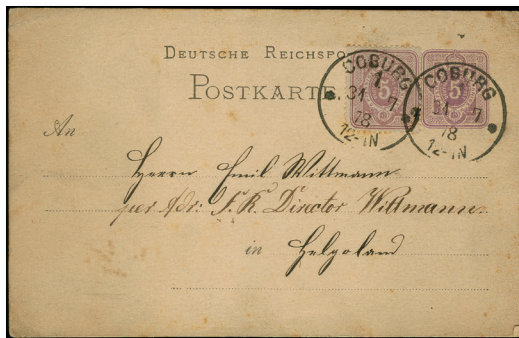 DEUTSCHE REICHSPO
POSTKARTE.
5
5
COBURG
1
31 7
78
12-1N
COBURG
31 7
78
12-1N
An
Herrn Emil Wittmann
per Adr: F. R. Director Wittmann
in Helgoland